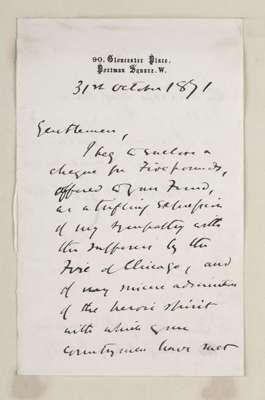 90. Gloucester Place.
Portman Square. W.
31st October 1871
Gentlemen,
I beg to enclose a
cheque for Five pounds,
offered to your Fund,
as a trifling expression
of my sympathy with
the sufferers by the
Fire of Chicago, and
of my sincere admiration
of the heroic spirit
with which your
countrymen have met